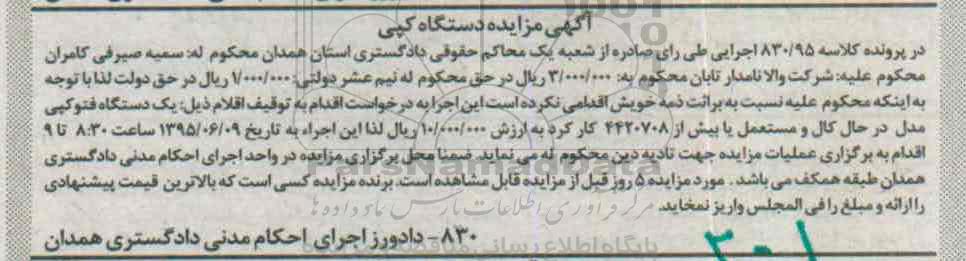 آگهی مزایده دستگاه کپی
در پرونده کلاسه ۸۳۰/۹۵ اجرایی طی رای صادره از شعبه یک محاکم حقوقی دادگستری استان همدان محکوم له: سمیه صیرفی کامران
محکوم علیه: شرکت والا نامدار تابان محکوم به: ۳/۰۰۰/۰۰۰ ریال در حق محکوم له نیم عشر دولتی: ۱/۰۰۰/۰۰۰ ریال در حق دولت لذا با توجه
به اینکه محکوم علیه نسبت به برائت ذمه خویش اقدامی نکرده است این اجرا به درخواست اقدام به توقیف اقلام ذیل: یک دستگاه فتوکپی
مدل در حال کال و مستعمل با بیش از ۴۴۲۰۷۰۸ کار کرد به ارزش ۱۰/۰۰۰/۰۰۰ ریال لذا این اجراء به تاریخ ۱۳۹۵/۰۶/۰۹ ساعت ۸:۳۰ تا ۹
اقدام به برگزاری عملیات مزایده جهت تادیه دین محکوم له می نماید. ضمنا محل برگزاری مزایده در واحد اجرای احکام مدنی دادگستری
همدان طبقه همکف می باشد. مورد مزایده ۵ روز قبل از مزایده قابل مشاهده است. برنده مزایده کسی است که بالاترین قیمت پیشنهادی
را ارائه و مبلغ را فی المجلس واریز نمخاید.
۸۳۰- دادورز اجرای احکام مدنی دادگستری همدان
ParsNamadData
مرکز فرآوری اطلاعات پارس نماد داده ها
۳۰۱